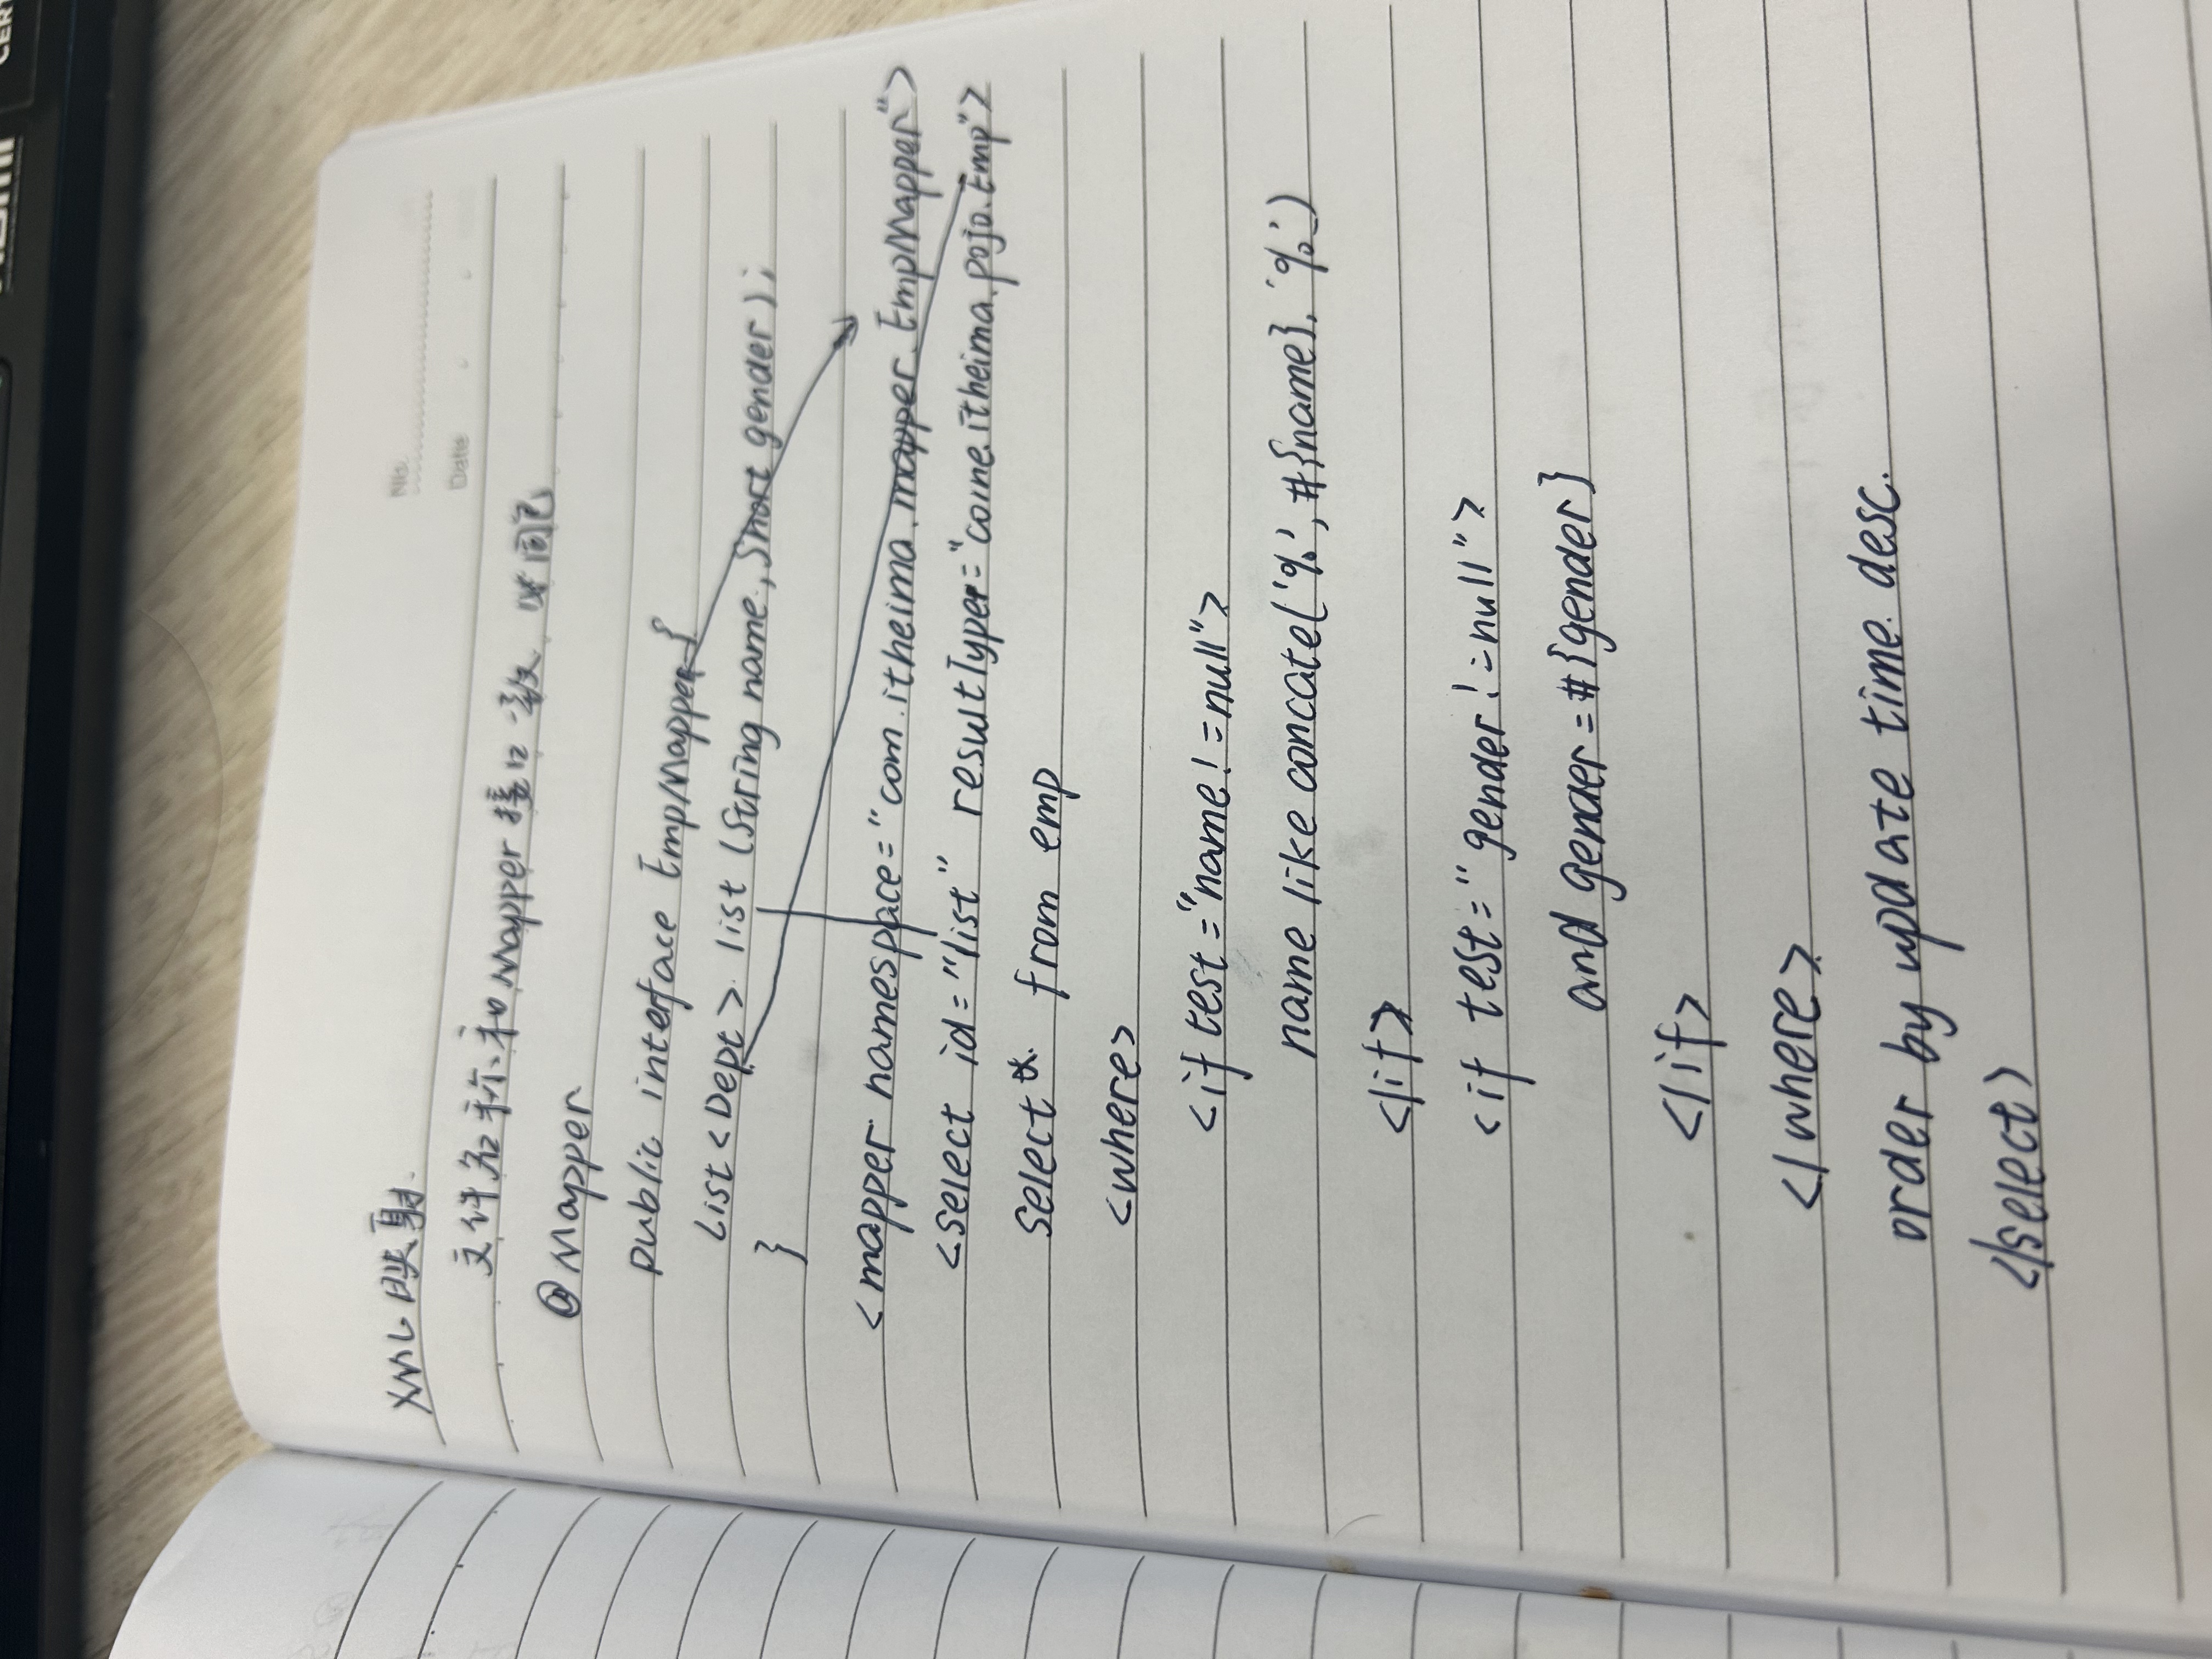 CERT
No.
Date
XML映射.
文件名称和Mapper接口一致. 同包
@Mapper
public interface EmpMapper {
List<Dept> list (String name, Short gender);
}
<mapper namespace="com.itheima.mapper.EmpMapper">
<select id="list" resultType="come.itheima.pojo.Emp">
select * from emp
<where>
<if test="name!=null">
name like concate('%', #{name}, '%')
</if>
<if test="gender!=null">
and gender=#{gender}
</if>
</where>
order by update time. desc.
</select>